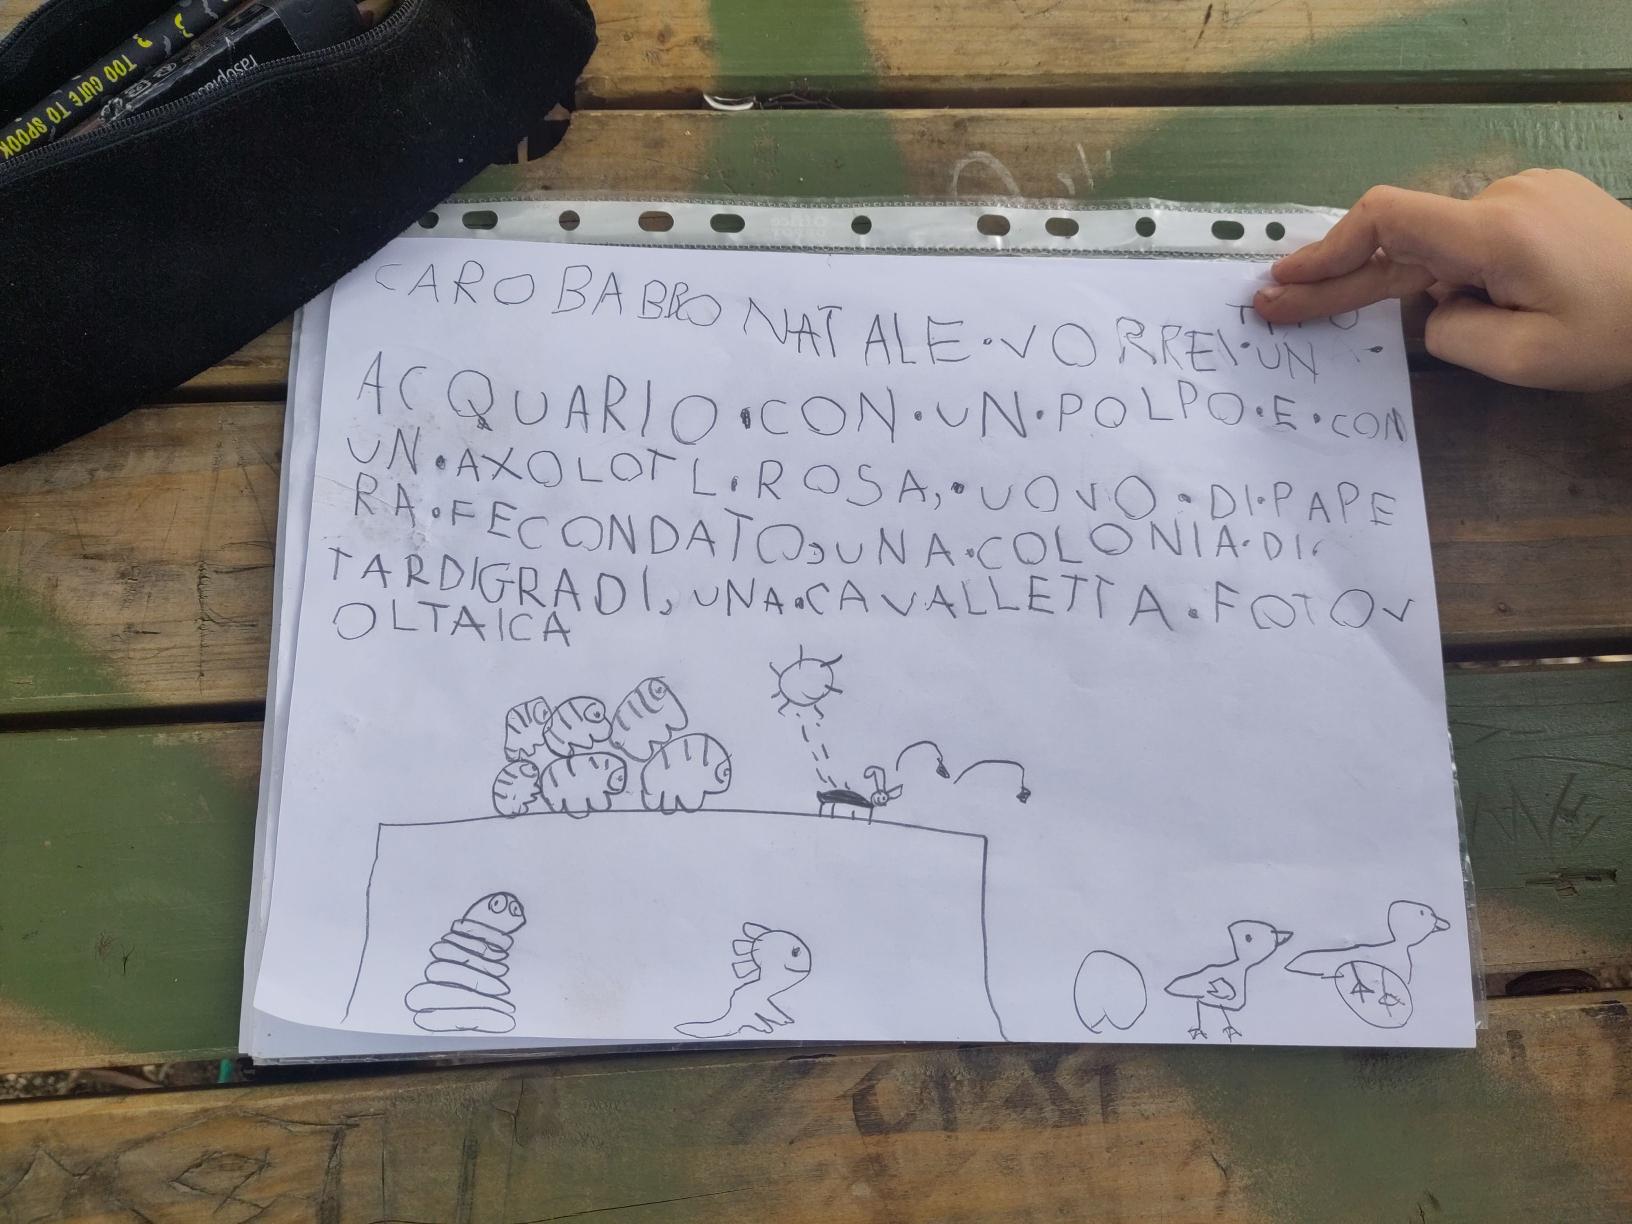 TOO CUTE TO SPOOK
CARO BABBO NATALE·VORREI·UN
ACQUARIO·CON·UN·POLPO·E·CON
UN·AXOLOTL·ROSA,·UOVO·DI·PAPE
RA·FECONDATO,UNA·COLONIA·DI
TARDIGRADI,UNA·CAVALLETTA·FOTOV
OLTAICA